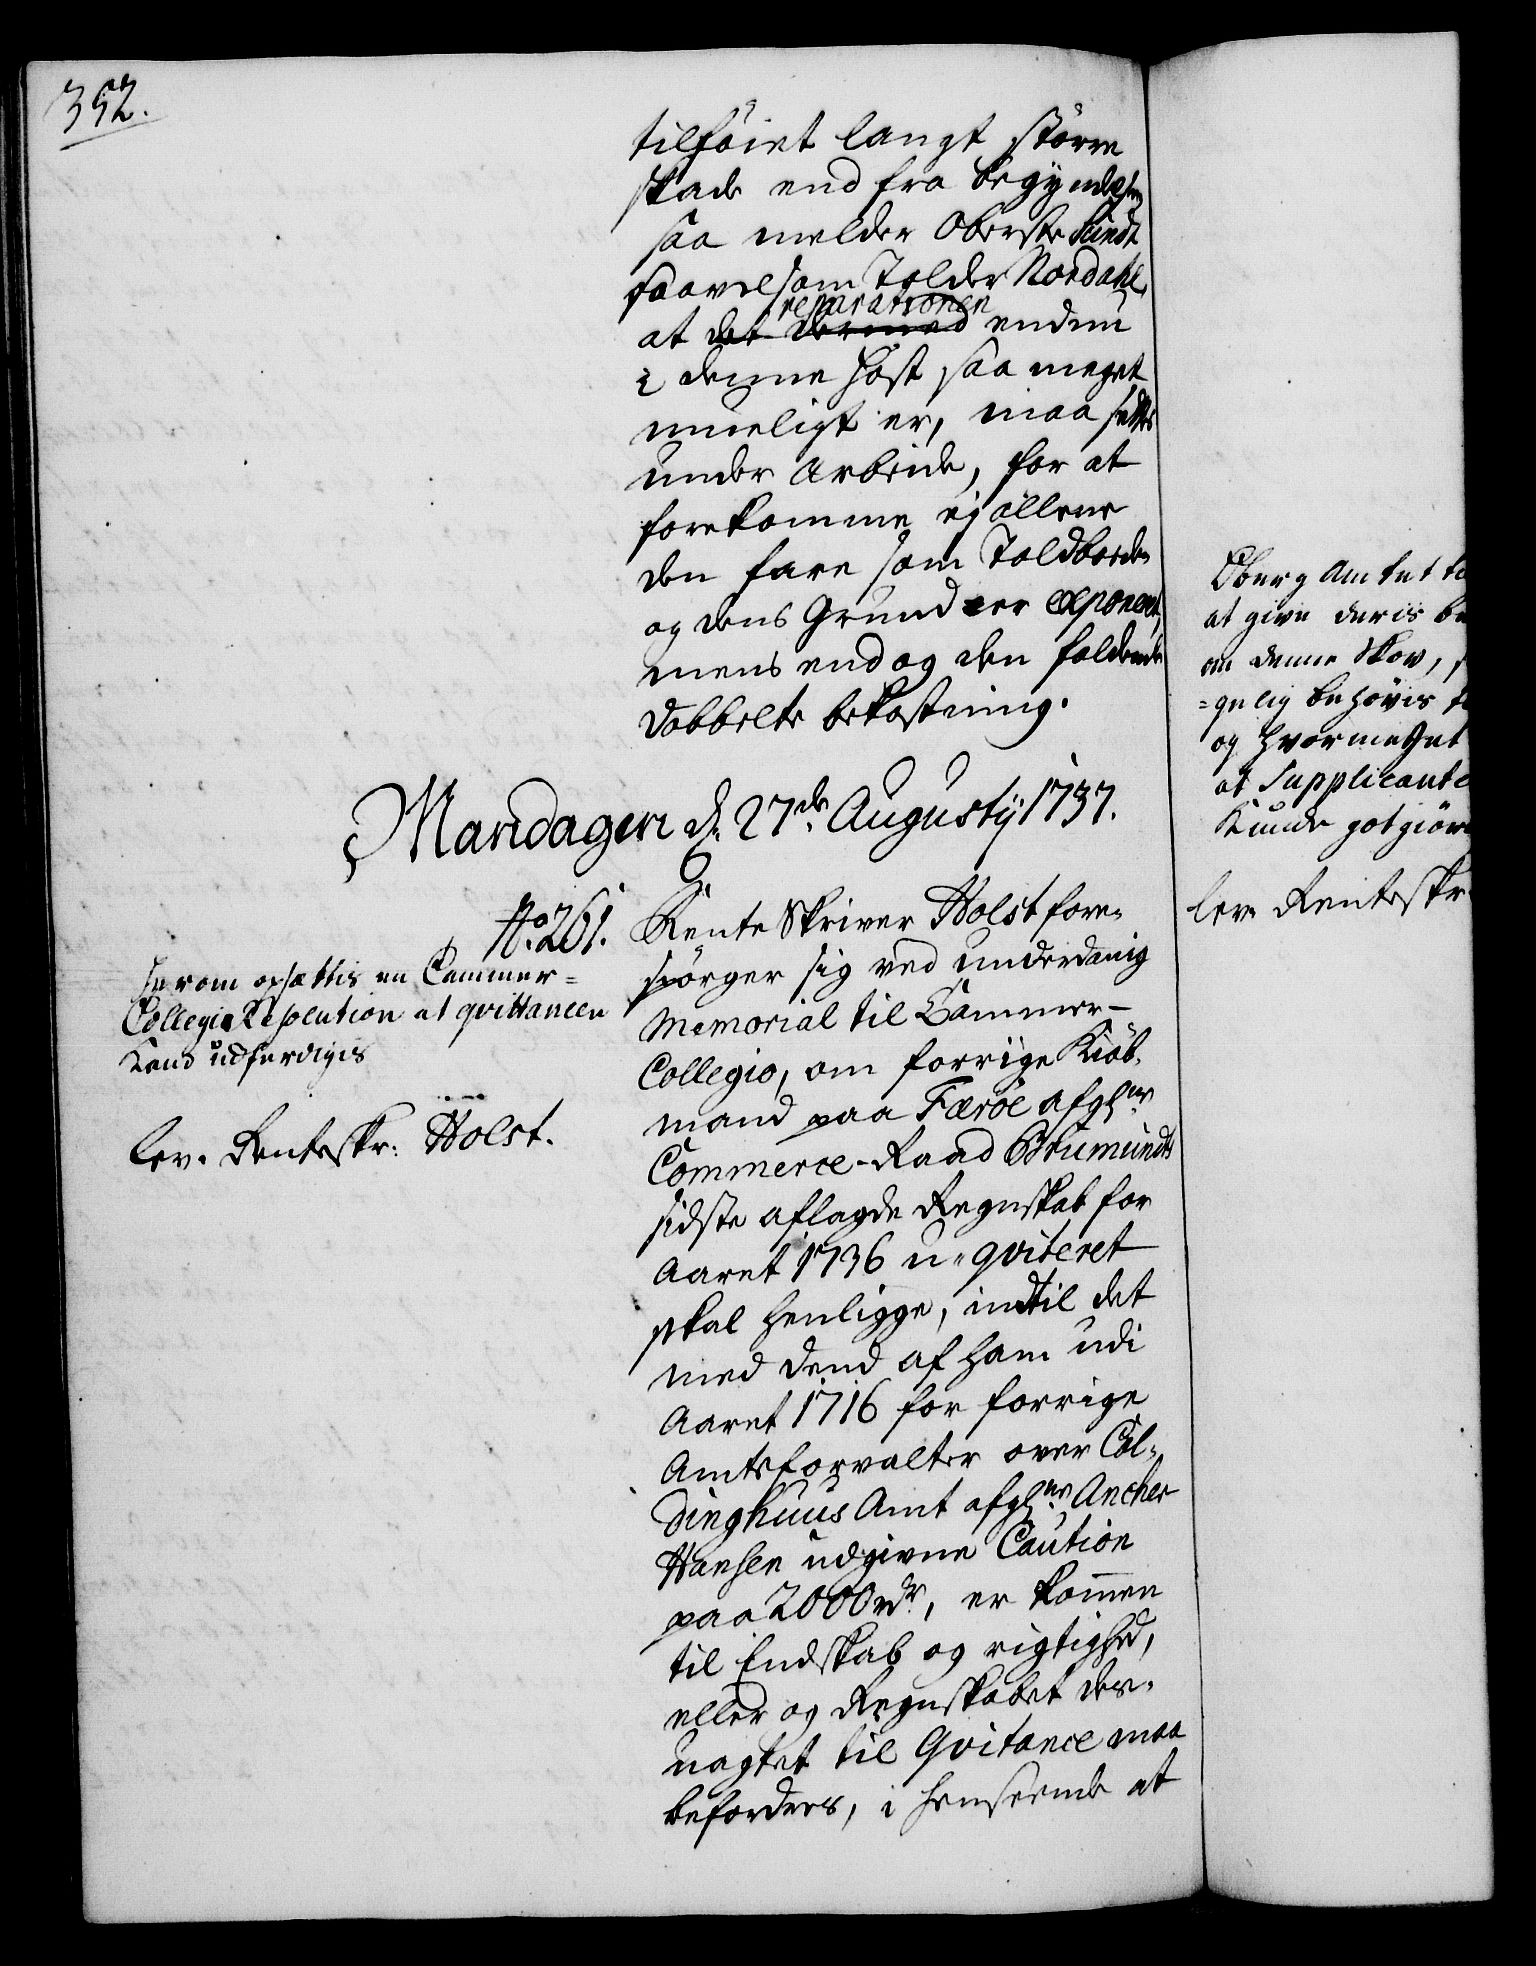 352.
tilföiet langt större
skade end fra begyndelsen
saa melder Oberste Sundt
saavelsom Tolder Nordahl
reparationen
at det dermed endnu
i denne Höst saa meget
mueligt er, maa settes
under Arbeide, for at
forekomme ej allene
den fare som Toldboeden
og dens Grund er exponeret,
mens end og den faldende
dobbelte bekostning.
Mandagen d. 27de Augustij 1737.
No. 261.
Herom opsættis en Cammer-
Collegie Resolution at qvittancen
Kand udferdigis
lev. Renteskr: Holst.
Rente Skriver Holst fore-
spörger sig ved underdanig
Memorial til Cammer-
Collegio, om forrige Kiöb-
mand paa Færöe afgl:
Commerce-Raad
sidste aflagde Regnskab for
Aaret 1736 u-qviteret
skal henligge, indtil det
med dend af ham udi
Aaret 1716 for forrige
Amtsforvalter over Col-
dinghuus Amt afgl: Ancher
Hansen udgivne Caution
paa 2000 rdr, er kommen
til Endskab og rigtighed,
eller og Regnskabet des-
uagtet til Qvitance maa
befordres, i henseende at
Oberg Amtet
at give deris
om denne Skov,
=gelig behövis
og hvormeget
at Supplicant
Kunde
lev. Renteskr